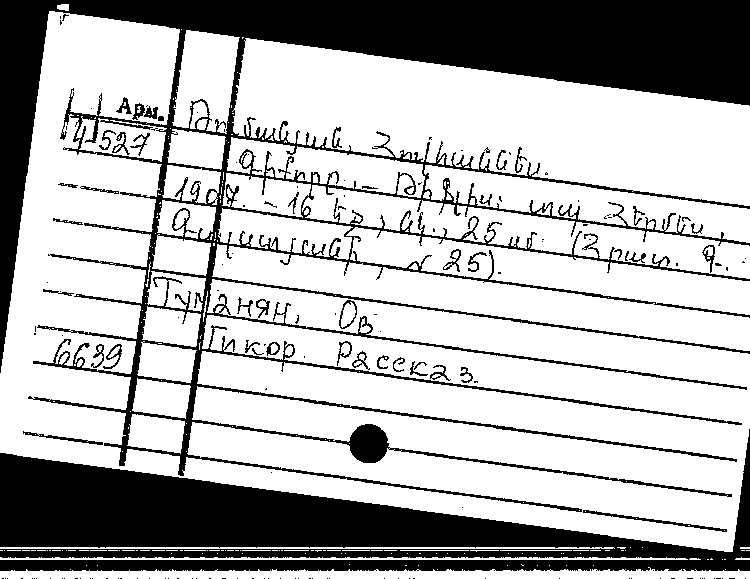 Арм.
4-527
Թումանյան, Հովհաննես.
Գիքորը. – Թիֆլիս: տպ. Հերմես,
1907. – 16 եջ, նկ., 25 սմ. (Հրատ. Գ.
, № 25).
Туманян, Ов.
Гикор. Рассказ.
6639